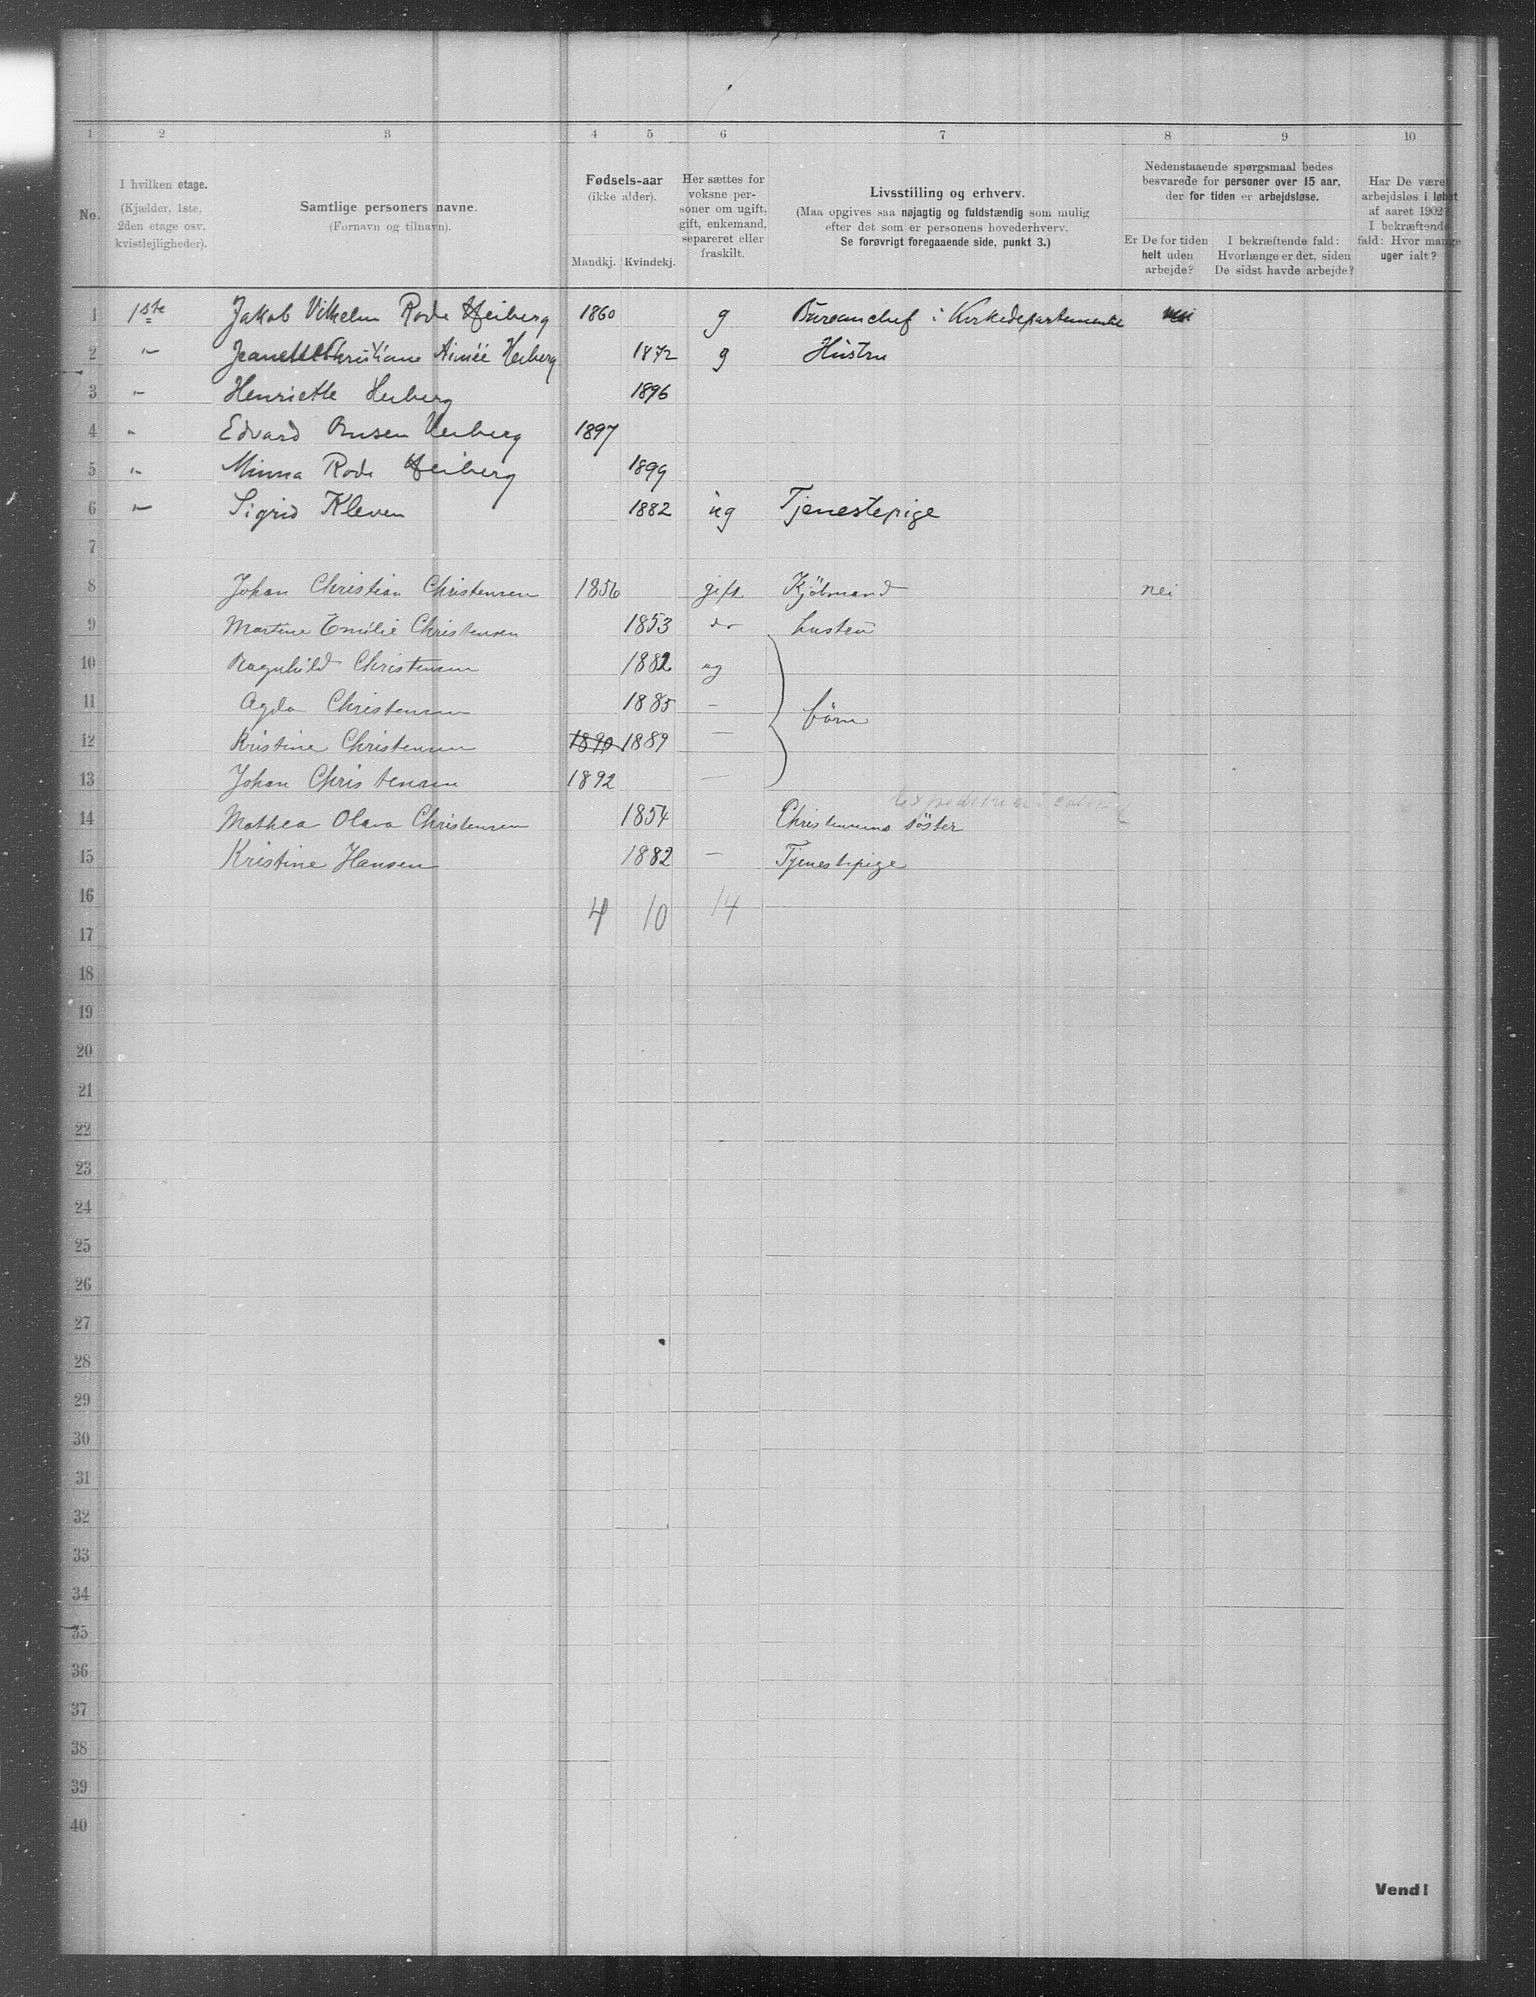 1 2 3 4 5 6 7 8 9 10
No.
I hvilken etage.
(Kjælder, 1ste.
2den etage osv.
kvistlejligheder).
Samtlige personers navne.
(Fornavn og tilnavn).
Fødsels-aar
(ikke alder).
Mandkj. Kvindekj.
Her sættes for
voksne per-
soner om ugift,
gift, enkemand,
separeret eller
fraskilt.
Livsstilling og erhverv.
(Maa opgives saa nøjagtig og fuldstændig som mulig
efter det som er personens hovederhverv.
Se forøvrigt foregaaende side, punkt 3.)
Nedenstaaende spørgsmaal bedes
besvarede for personer over 15 aar,
der for tiden er arbejdsløse.
Er De for tiden
helt uden
arbejde?
I bekræftende fald:
Hvorlænge er det, siden
De sidst havde arbejde?
Har De været
arbejdsløs i løbet
af aaret 1902?
I bekræftende
fald: Hvor mange
uger ialt?
1 1ste Jakob Vilhelm Rode Heiberg 1860 g Bureauchef i Kirkedepartementet nei
2 - Jeanette Christiane Aimée Heiberg 1872 g Hustru
3 - Henriette Heiberg 1896
4 - Edvard Heiberg 1897
5 - Minna Rode Heiberg 1899
6 - Sigrid Kleven 1882 ug Tjenestepige
7
8 Johan Christian Christensen 1856 gift Kjöbmand nei
9 Martine Emilie Christensen 1853 do hustru
10 Ragnhild Christensen 1882 ug
11 Agda Christensen 1885 - börn
12 Kristine Christensen 1890 1889 -
13 Johan Christensen 1892 -
14 Mathea Olava Christensen 1854 Christensens söster
15 Kristine Hansen 1882 - Tjenestepige
16
4 10 14
17
18
19
20
21
22
23
24
25
26
27
28
29
30
31
32
33
34
35
36
37
38
39
40
Vend!